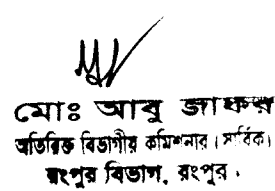 মোঃ আবু জাফর
অতিরিক্ত বিভাগীয় কমিশনার (সার্বিক)
রংপুর বিভাগ, রংপুর।